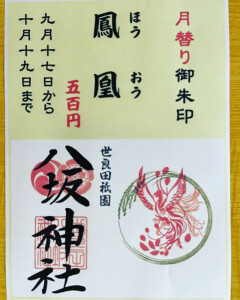 月替り御朱印
鳳凰
ほうおう
五百円
九月十七日から
十月十九日まで
世良田祇園
八坂神社